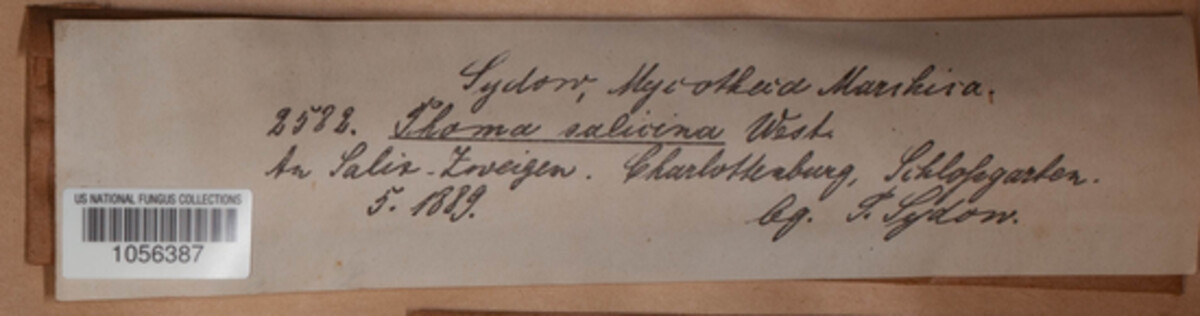 Sydow, Mycotheca Marchica.
2582. Phoma salicina West.
An Salix-Zweigen. Charlottenburg, Schloßgarten.
5. 1889. lg. P. Sydow.
US NATIONAL FUNGUS COLLECTIONS
1056387